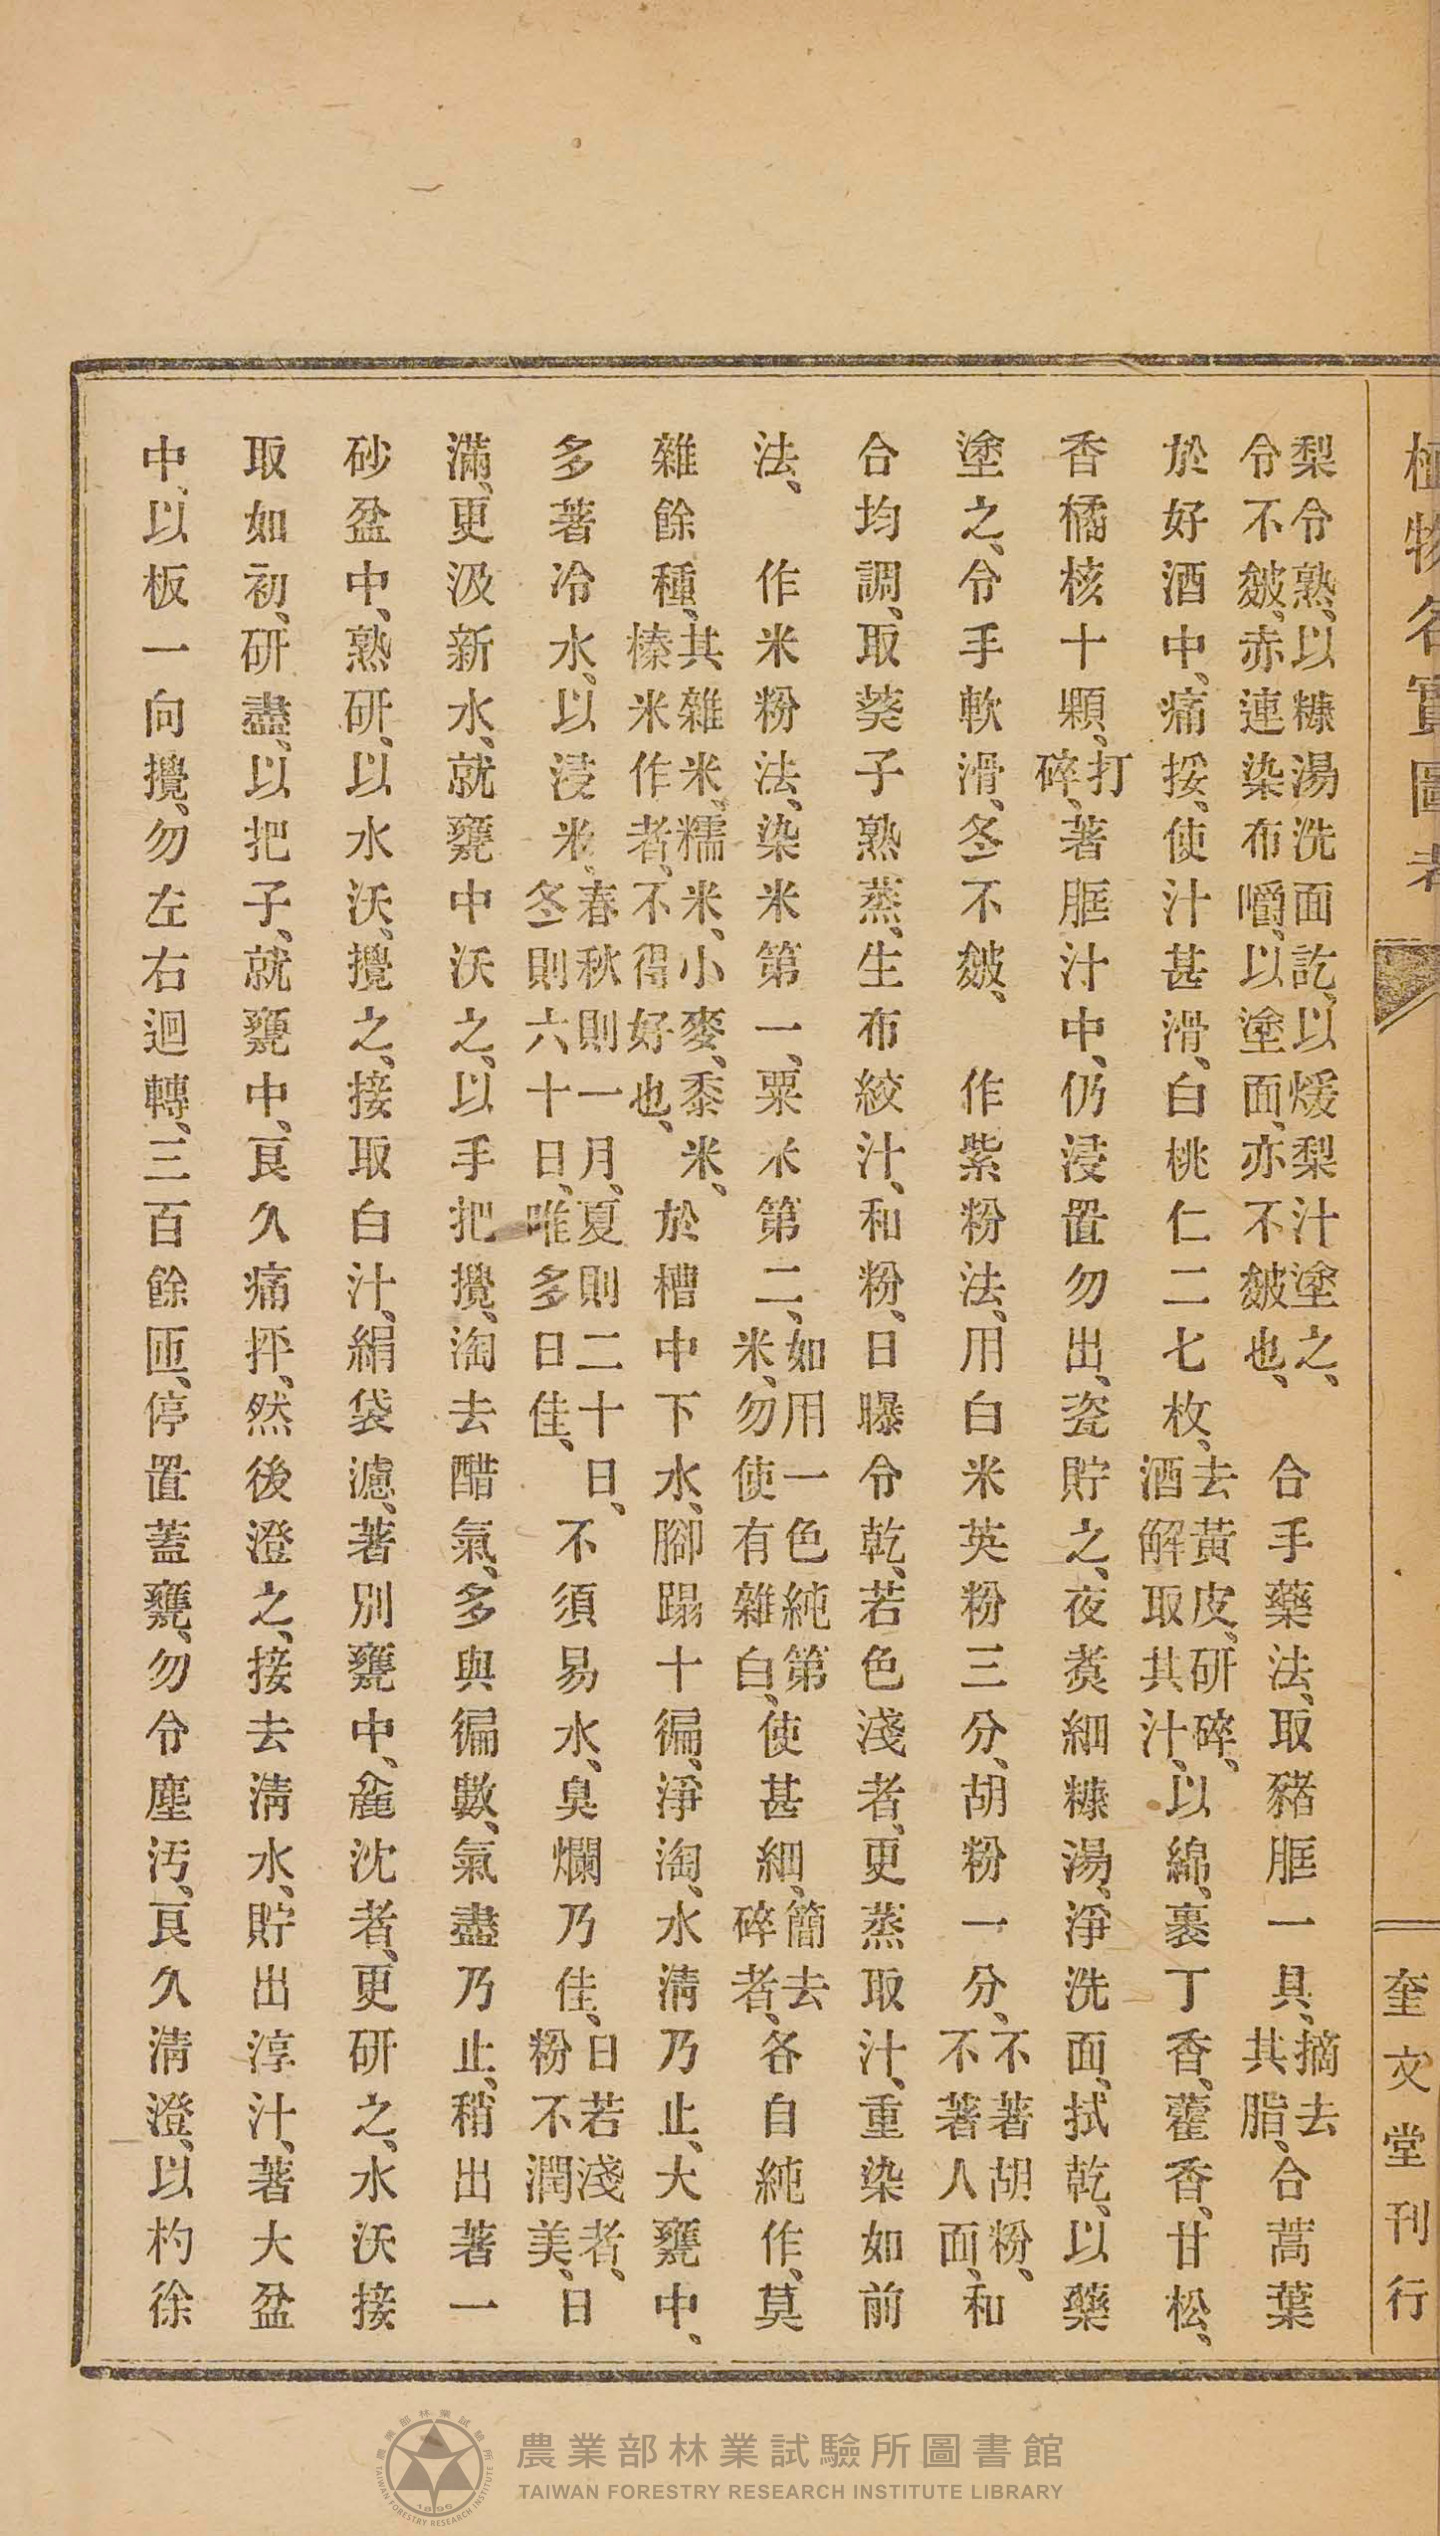 植物名實圖考
奎文堂刊行
梨令熟、以糠湯洗面訖、以煖梨汁塗之、令不皴、赤連染布嚼、以塗面、亦不皴也、　合手藥法、取豬胠一具、摘去其脂、合蒿葉
於好酒中、痛挼、使汁甚滑、白桃仁二七枚、去黃皮、研碎、酒解取其汁、以綿裹丁香、藿香、甘松、
香橘核十顆、打碎、著胠汁中、仍浸置勿出、瓷貯之、夜煑細糠湯、淨洗面、拭乾、以藥
塗之、令手軟滑、冬不皴、　作紫粉法、用白米英粉三分、胡粉一分、不著胡粉、不著人面、和
合均調、取葵子熟蒸、生布絞汁、和粉、日曝令乾、若色淺者、更蒸取汁、重染如前
法、　作米粉法、染米第一、粟米第二、如用一色純第米、勿使有雜白、使甚細、簡去碎者、各自純作、莫
雜餘種、其雜米、糯米、小麥、黍米、榛米作者、不得好也、於槽中下水、腳蹋十徧、淨淘、水清乃止、大甕中、
多著冷水、以浸米、春秋則一月、夏則二十日、冬則六十日、唯多日佳、不須易水、臭爛乃佳、日若淺者、粉不潤美、日
滿、更汲新水、就甕中沃之、以手把攪、淘去醋氣、多與徧數、氣盡乃止、稍出著一
砂盆中、熟研、以水沃、攪之、接取白汁、絹袋濾、著別甕中、麄沈者、更研之、水沃接
取如初、研盡、以把子、就甕中、良久痛抨、然後澄之、接去清水、貯出淳汁、著大盆
中、以板一向攪、勿左右迴轉、三百餘匝、停置蓋甕、勿令塵汚、良久清澄、以杓徐
農業部林業試驗所圖書館
TAIWAN FORESTRY RESEARCH INSTITUTE LIBRARY
農業部林業試驗所
TAIWAN FORESTRY RESEARCH INSTITUTE
1895